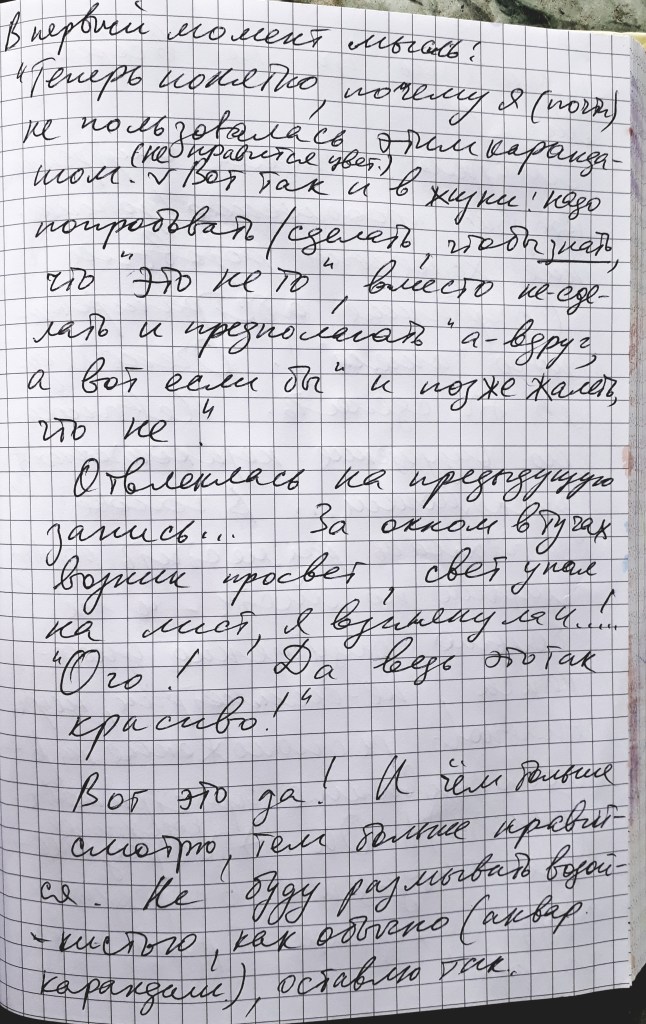 В первый момент мысль:
"Теперь понятно, почему я (почти)
не пользовалась этим каранда-
(не нравится цвет.)
шом. Вот так и в жизни: надо
попробовать / сделать, чтобы знать,
что "это не то", вместо не-сде-
лать и предполагать "а-вдруг,
а вот если бы" и позже жалеть,
что не."
Отвлеклась на предыдущую
запись... За окном в тучах
возник просвет, свет упал
на лист, я взглянула и.....!
"Ого! Да ведь это так
красиво!"
Вот это да! И чем больше
смотрю, тем больше нравит-
ся. Не буду размывать водой-
-кистью, как обычно (аквар.
карандаши), оставлю так.